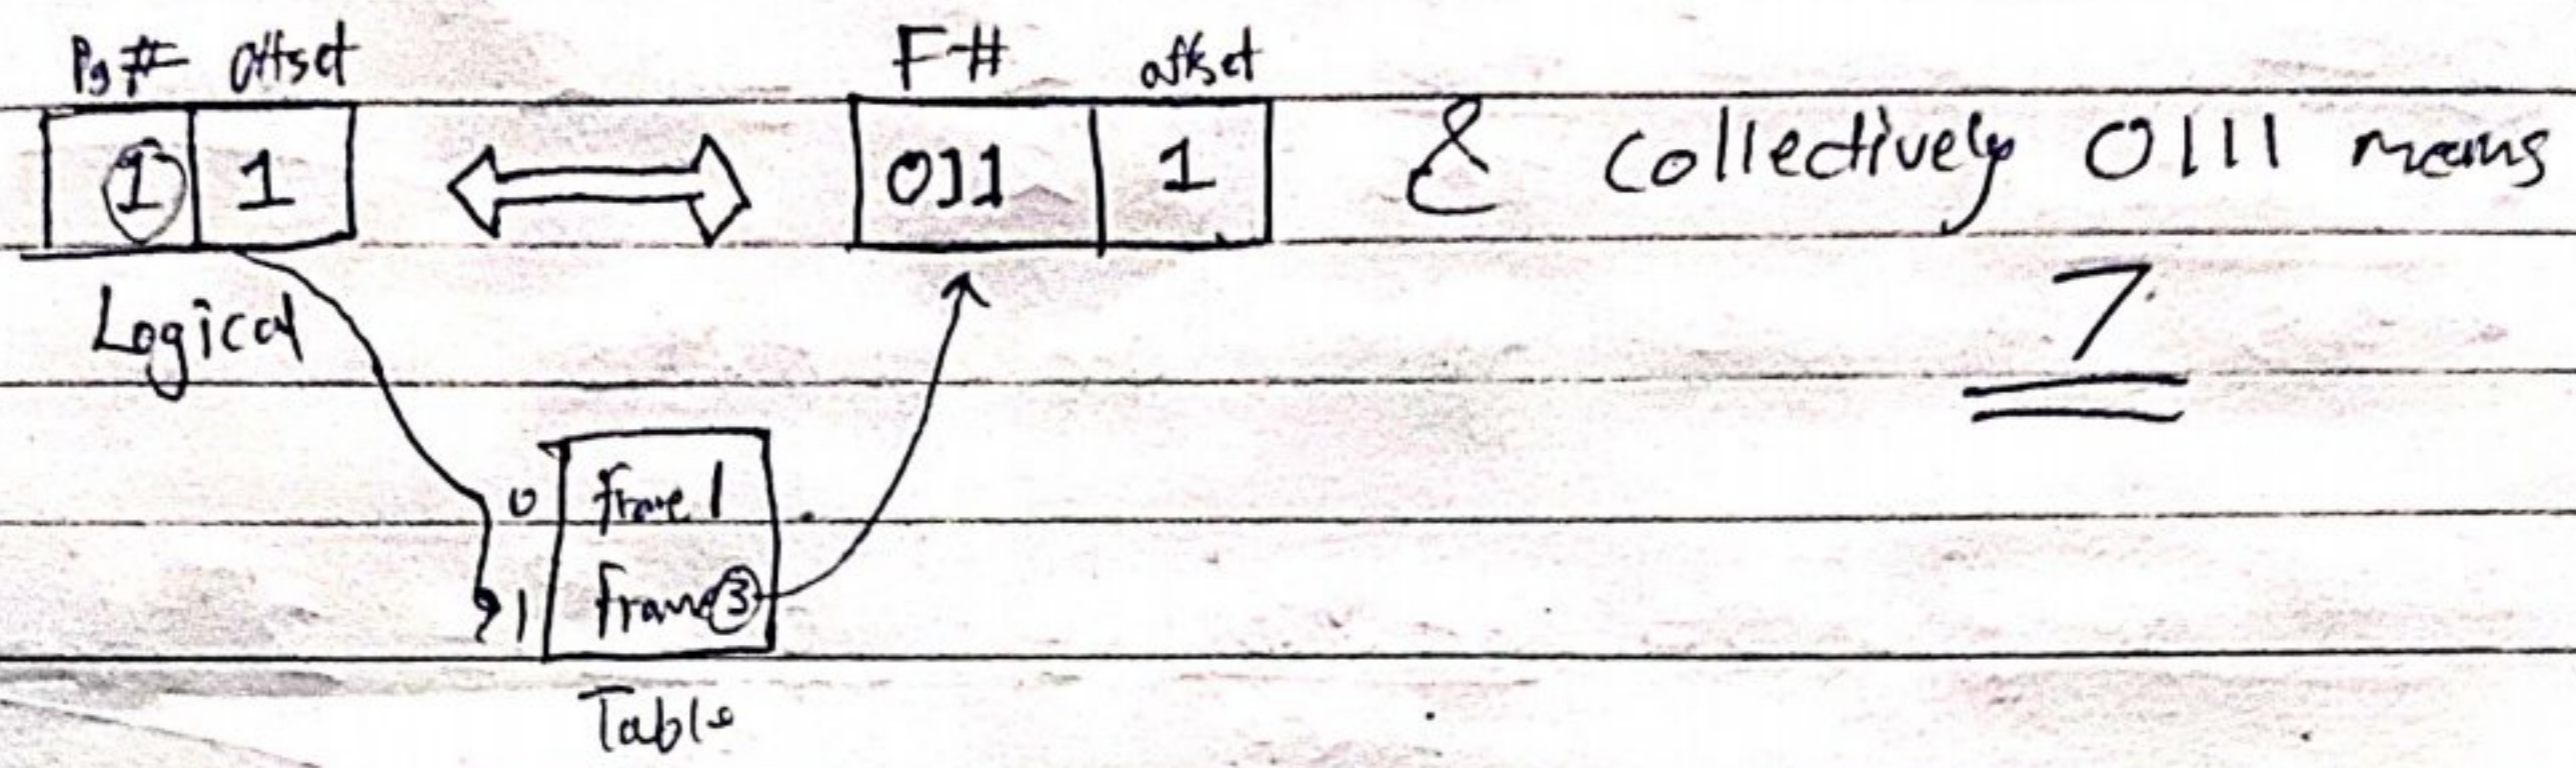 Pg# offset F# offset
1 1 011 1 & collectively 0111 means
Logical 7
0 frame 1
1 frame 3
Table